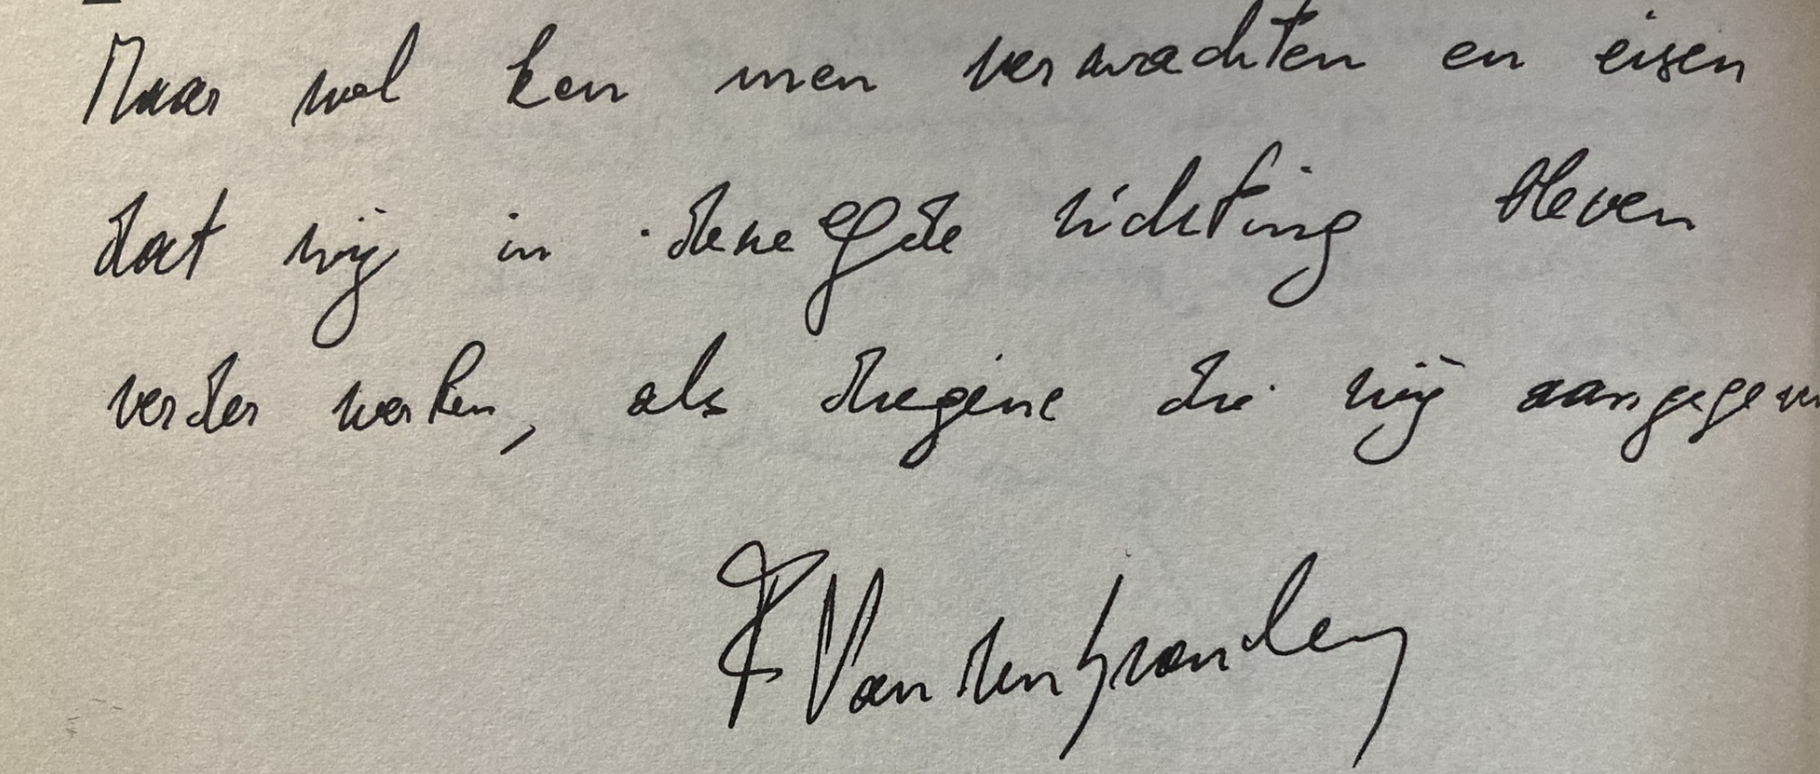 Maar wel kan men verwachten en eisen
dat wij in dezelfde richting bleven
verder werken, als diegene die wij aangegeven
F Vandenbranden